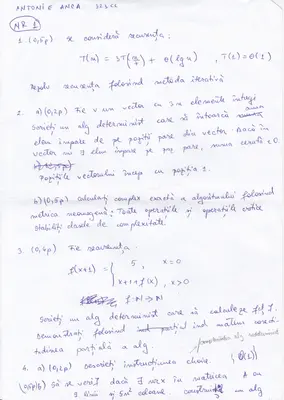 ANTONIE ANCA 323CC
NR 1
1. (0,5p) Se consideră recurența:
T(n) = 3T(n/2) + θ(log n), T(1) = θ(1)
Rezolv. recurența folosind metoda iterativă
2. a) (0,2p) Fie V un vector cu n elemente întregi
Scrieți un alg determinist care să întoarcă suma
elem impare de pe poziții pare din vector. Dacă în
vector nu ∃ elem impare pe poz pare,
Pozițiile vectorului încep cu poziția 1.
b) (0,5p) Calculați complex exactă a algoritmului folosind
metrica neomogenă: Toate operațiile și operațiile critice
Stabiliți clasele de complexitate.
3. (0,4p) Fie recurența.
f(x+1) = { 5, x=0
x+1+f(x), x>0
f: N → N
Scrieți un alg determinist care să calculeze
Demonstrați folosind
parțială a alg.
4. a) (0,2p) Descrieți instrucțiunea choice.
(0,5p) b) Să se verif dacă ∃ în matricea A cu
linii și coloane. un alg